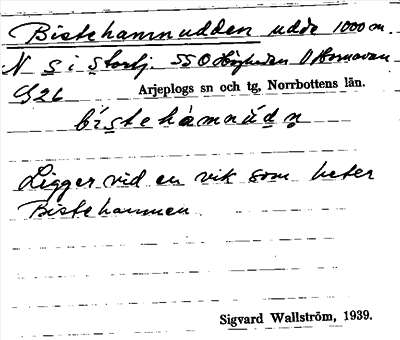 Bistehamnudden udde 1000 m.
N S i Storbj. SSO Högheden O Hornavan
G26 Arjeplogs sn och tg, Norrbottens län.
bístehàmnúdn
Ligger vid en vik som heter
Bistehamnen.
Sigvard Wallström, 1939.